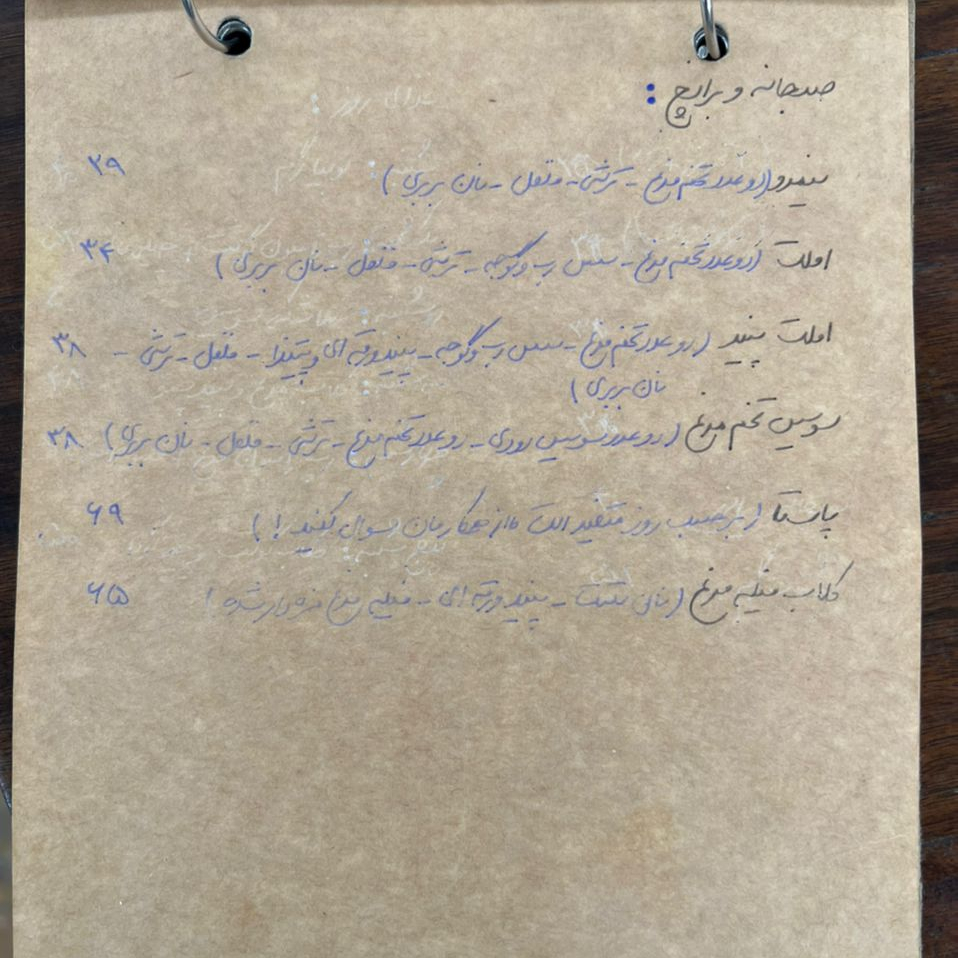 صبحانه و برانچ :
نیمرو (دو عدد تخم مرغ - ترشی - فلفل - نان بربری) ۲۹
املت (دو عدد تخم مرغ - سس رب و گوجه - ترشی - فلفل - نان بربری) ۳۴
املت پنیر (دو عدد تخم مرغ - سس رب و گوجه - پنیر ورقه ای و پیتزا - فلفل - ترشی - ۳۸
نان بربری)
سوسیس تخم مرغ (دو عدد سوسیس رودی - دو عدد تخم مرغ - ترشی - فلفل - نان بربری) ۳۸
پاستا (بر حسب روز متغیر است از همکارمان سوال کنید!) ۶۹
کلاب فیله مرغ (نان تست - پنیر ورقه ای - فیله مرغ مزه دار شده) ۶۵